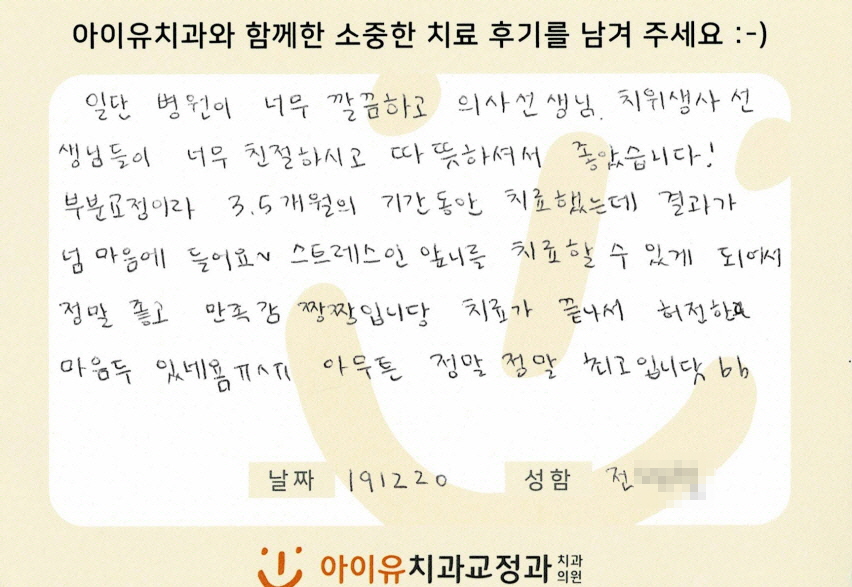 아이유치과와 함께한 소중한 치료 후기를 남겨 주세요 :-)
일단 병원이 너무 깔끔하고 의사선생님, 치위생사 선
생님들이 너무 친절하시고 따뜻하셔서 좋았습니다!
부분교정이라 3.5개월의 기간동안 치료했는데 결과가
넘 마음에 들어요~ 스트레스인 앞니를 치료할 수 있게 되어서
정말 좋고 만족감 짱짝입니당 치료가 끝나서 허전한
마음두 있네욤 ㅠㅅㅠ 아무튼 정말 정말 최고입니닷 bb
날짜 191220 성함 전
아이유치과교정과 치과
의원